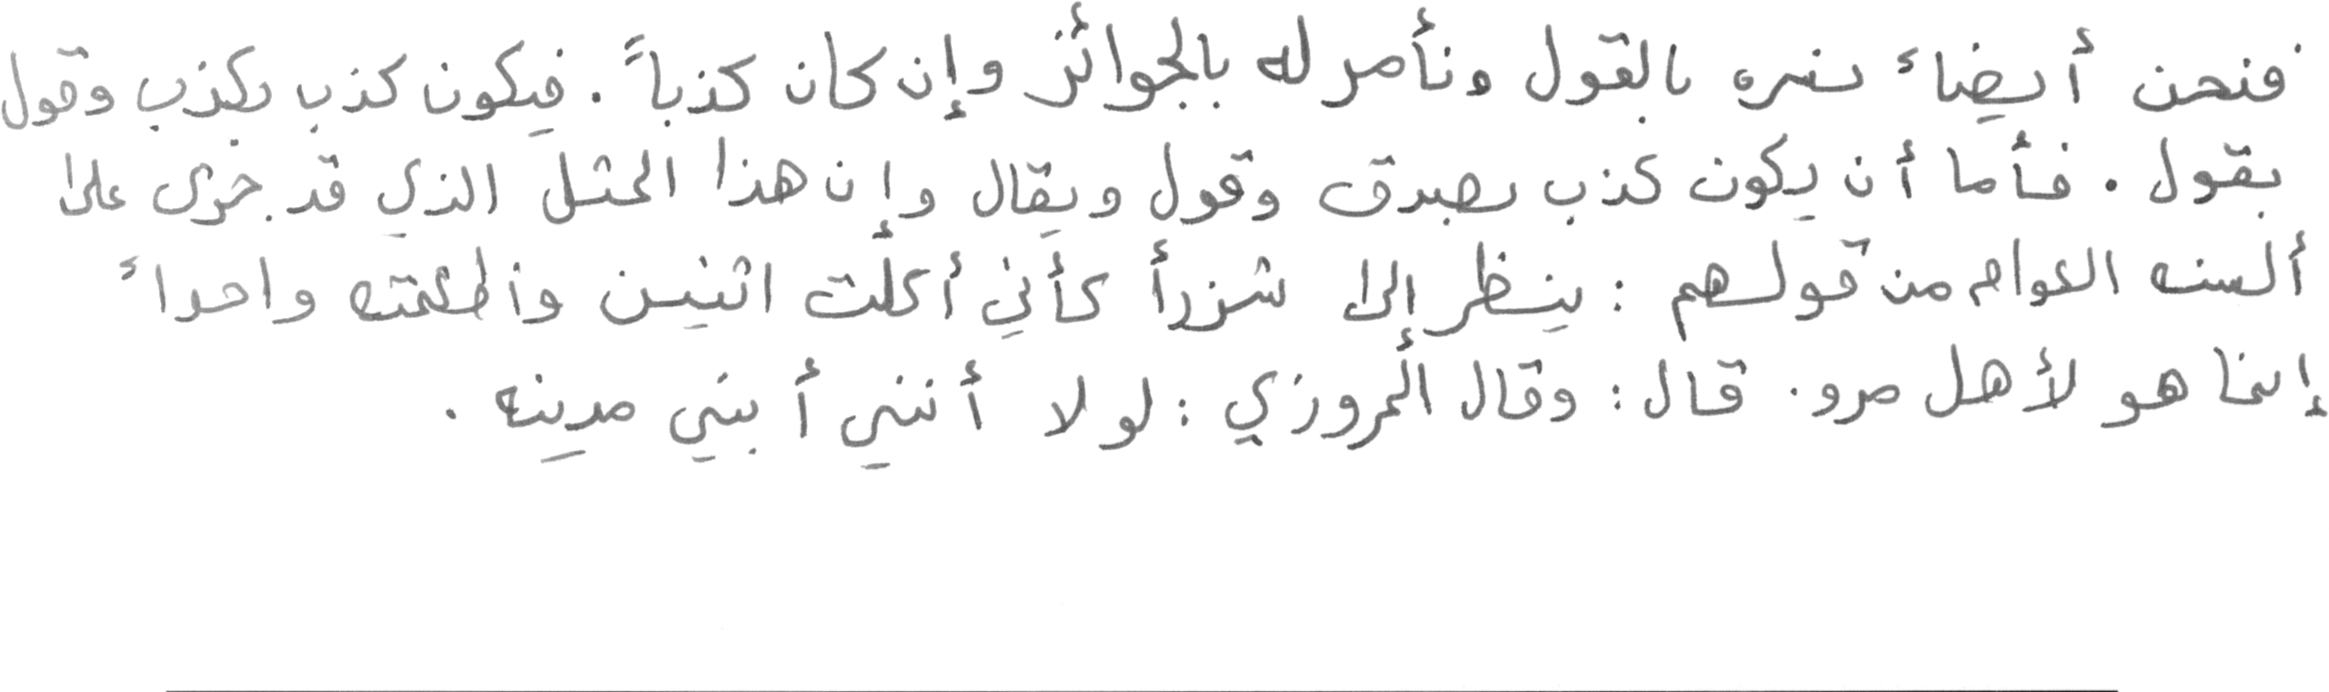 فنحن أيضاً نسره بالقول ونأمر له بالجوائز وإن كان كذباً . فيكون كذب بكذب وقول
بقول . فأما أن يكون كذب بصدق وقول ويقال وإن هذا المثل الذي قد جرى على
ألسنه العوام من قولهم : ينظر إلى شزراً كأني أكلت اثنين وأطعمته واحداً
إنما هو لأهل مرو . قال : وقال المروزي : لولا أنني أبني مدينه .